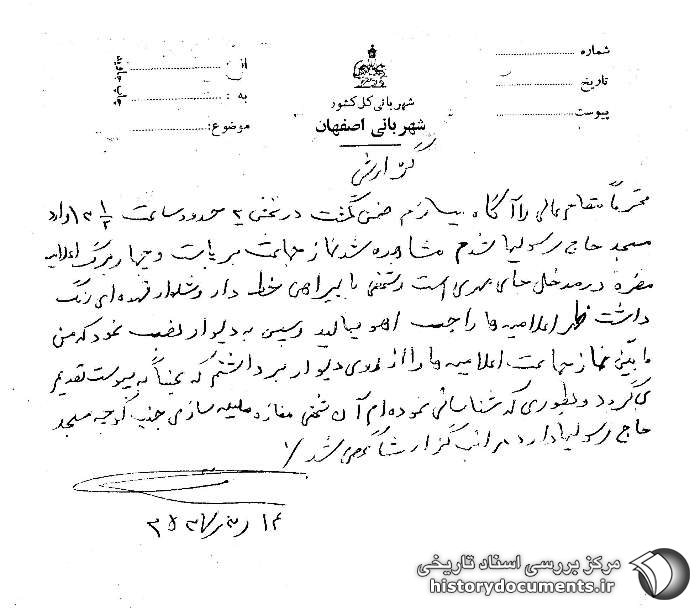 شماره
تاریخ
پیوست
شهربانی کل کشور
شهربانی اصفهان
از
به :
موضوع:
چاپ جاوید
گزارش
محترماً مقام عالی را آگاه میسازم ضمن گشت در بخش ۲ حدود ساعت ۱۲ ۱/۲ وارد
مسجد حاج رسولیها شدم مشاهده شد نماز جماعت برپاست و چهار برگ اعلامیه
مضره در مدخل جای مهری است و شخصی با پیراهن خط دار و شلوار قهوه ای رنگ
داشت اعلامیه ها را چسب اهو میمالید و سپس به دیوار نصب نمود که من
نماز جماعت اعلامیه ها را از روی دیوار برداشتم که عیناً به پیوست تقدیم
می گردد و بطوری که شناسائی نموده ام آن شخص مغازه سازی جنب کوچه مسجد
حاج رسولیها دارد مراتب گزارشاً عرض شد
مرکز بررسی اسناد تاریخی
historydocuments.ir